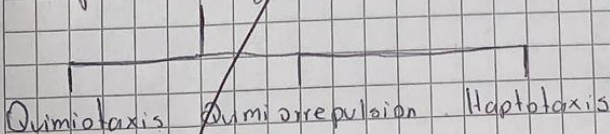 Quimiotaxis Quimiorrepulsion Haptotaxis